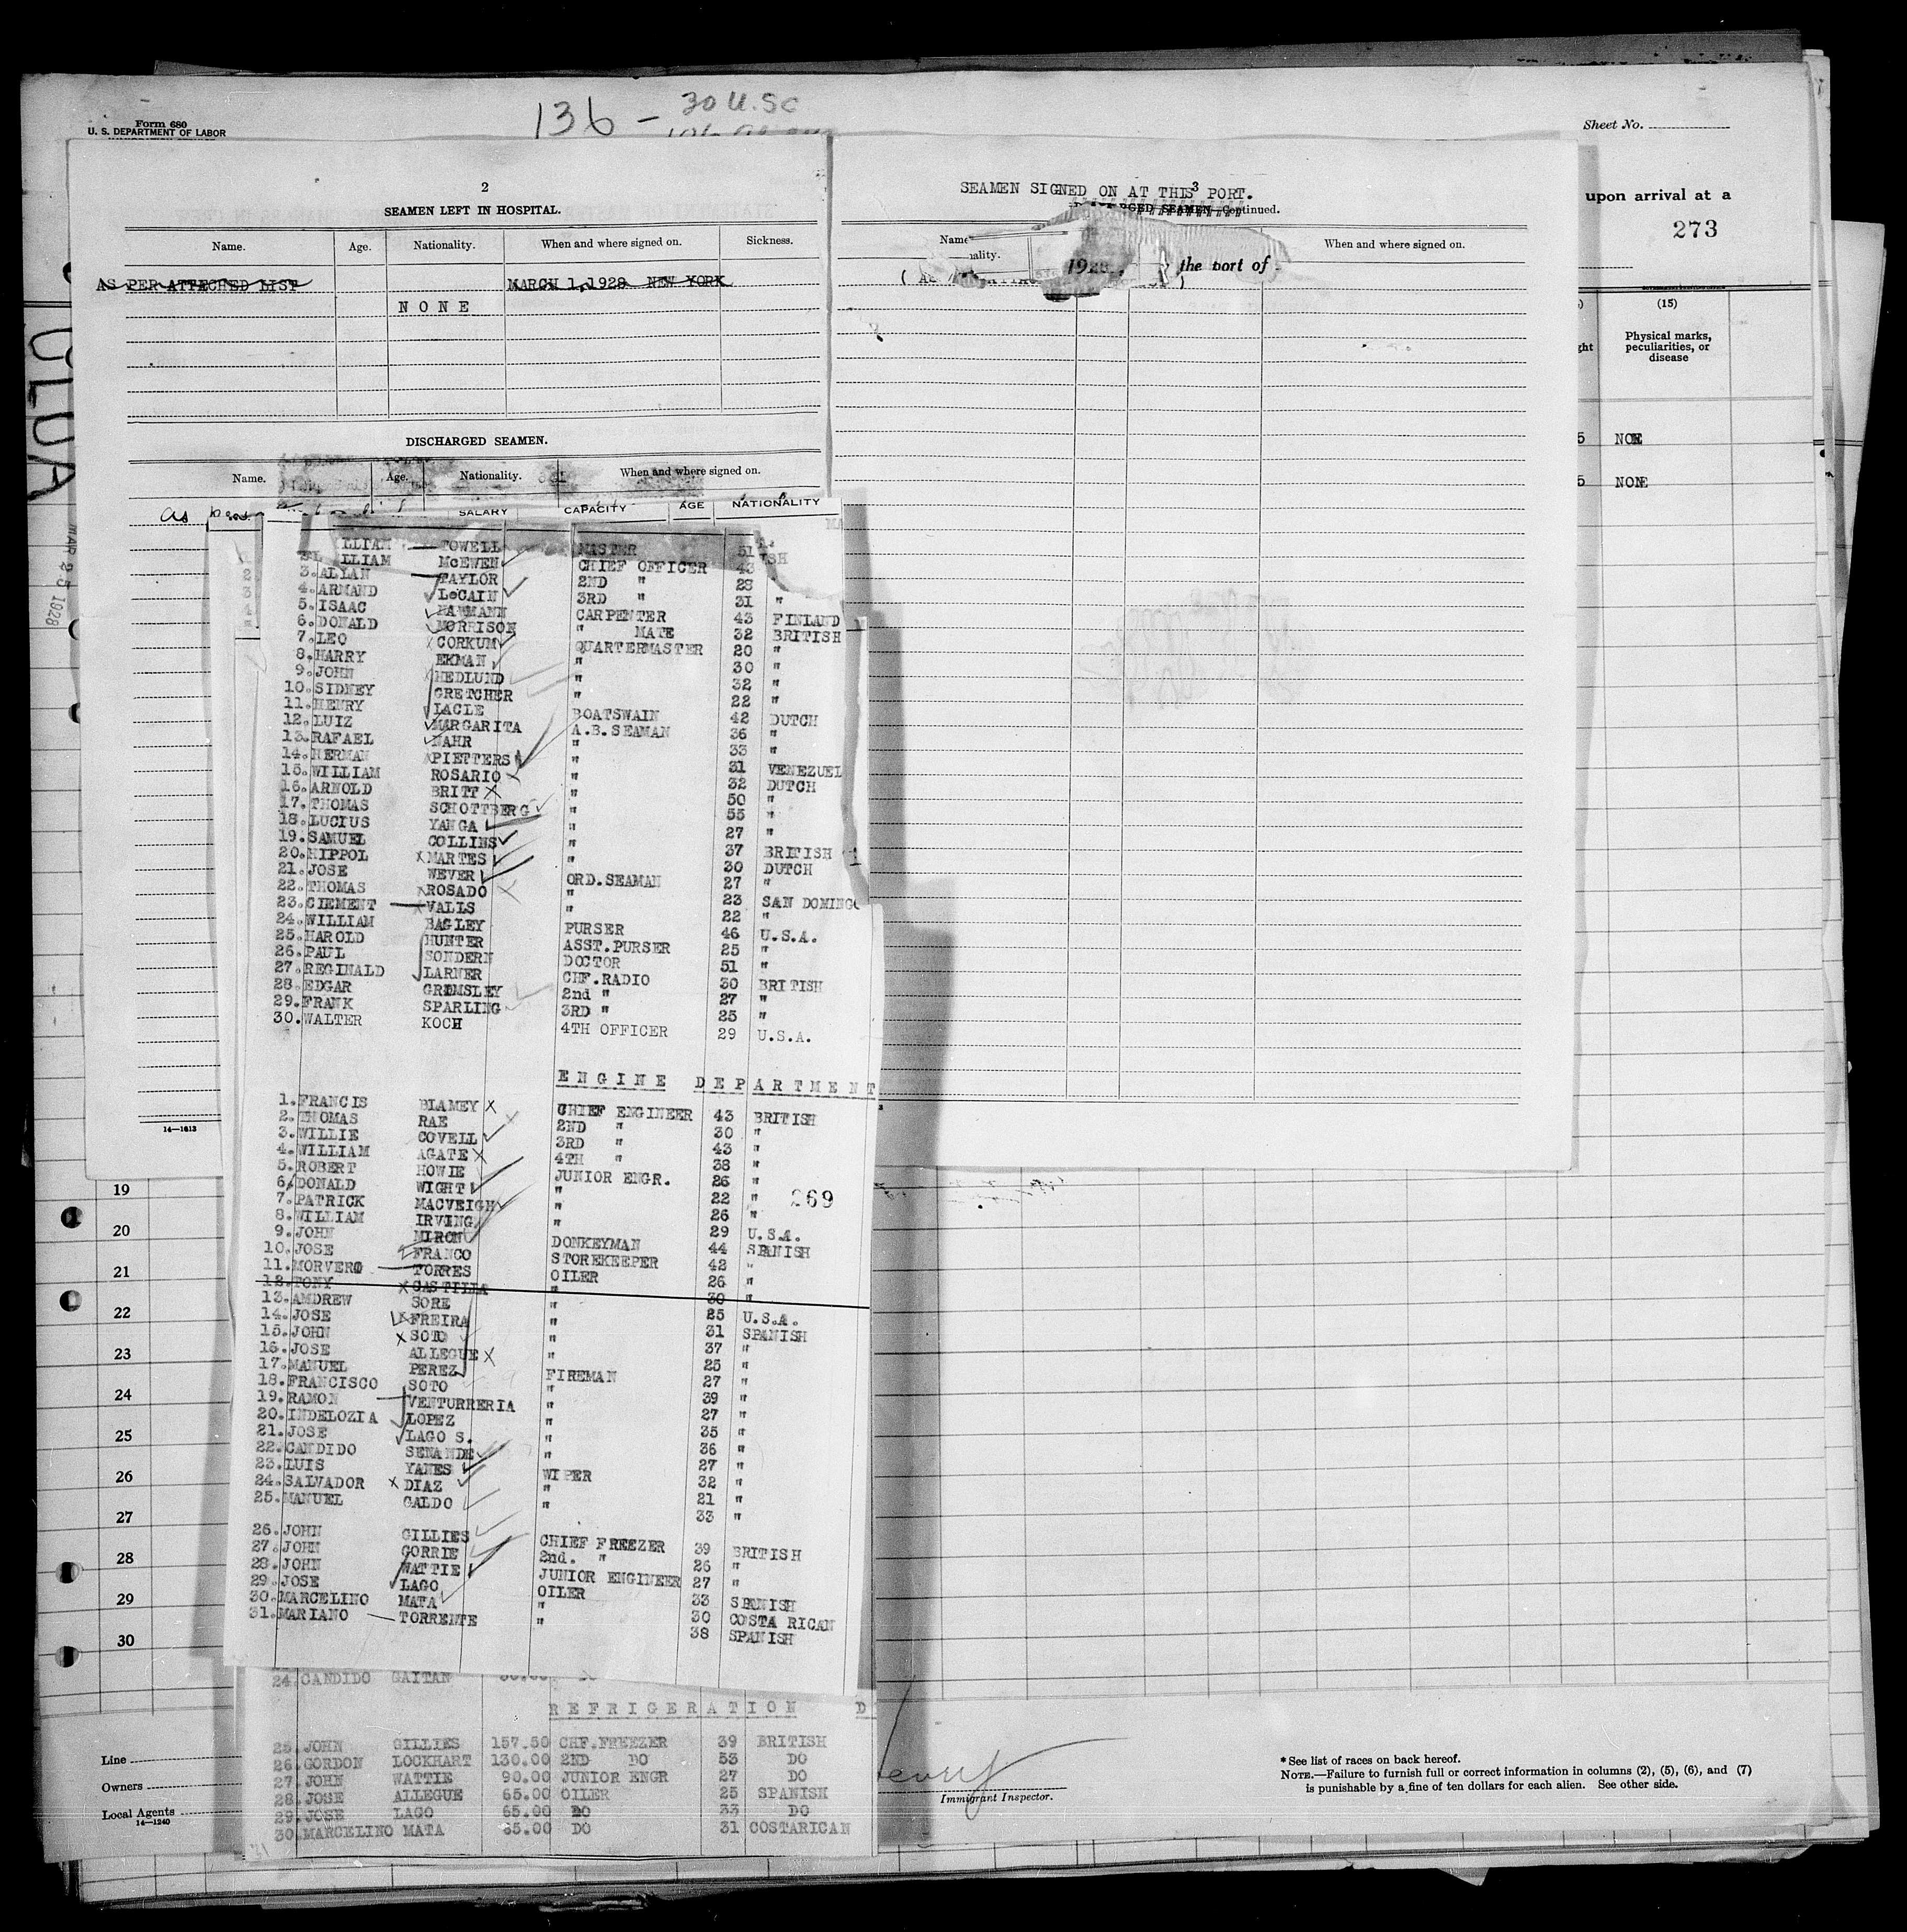 Form 680
U. S. DEPARTMENT OF LABOR
136 - 30 U.SC
Sheet No.
upon arrival at a
273
2
SEAMEN LEFT IN HOSPITAL.
Name. Age. Nationality. When and where signed on. Sickness.
AS PER ATTECHED LIST MARCH 1,1928 NEW YORK
NONE
DISCHARGED SEAMEN.
Name. Age. Nationality. When and where signed on.
As per
3
SEAMEN SIGNED ON AT THIS PORT.
SEAMEN—Continued.
Name When and where signed on.
ality.
192 the port of
(15)
Physical marks, peculiarities, or disease
ght
5 NONE
5 NONE
ULUA
MAR 25 1928
SALARY CAPACITY AGE NATIONALITY
LLIAM TOWELL MASTER 51
LLIAM McEWEN CHIEF OFFICER 43 ISH
3. ALLAN TAYLOR 2ND " 28
4. ARMAND LeCAIN 3RD " 31 "
5. ISAAC HANMANN CARPENTER 43 FINLAND
6. DONALD MORRISON " MATE 32 BRITISH
7. LEO CORKUM QUARTERMASTER 20 "
8. HARRY EKMAN " 30 "
9. JOHN HEDLUND " 32 "
10. SIDNEY GRETCHER " 22 "
11. HENRY LACLE BOATSWAIN 42 DUTCH
12. LUIZ MARGARITA A.B.SEAMAN 36 "
13. RAFAEL MAHR " 33 "
14. HERMAN PIETTERS " 31 VENEZUEL
15. WILLIAM ROSARIO " 32 DUTCH
16. ARNOLD BRITT " 50 "
17. THOMAS SCHOTTBERG " 55 "
18. LUCIUS YANGA " 27 "
19. SAMUEL COLLINS " 37 BRITISH
20. HIPPOL MARTES " 30 DUTCH
21. JOSE WEVER ORD.SEAMAN 27 "
22. THOMAS ROSADO " 23 SAN DOMINGO
23. CLEMENT VALLS " 22 "
24. WILLIAM BAGLEY PURSER 46 U.S.A.
25. HAROLD HUNTER ASST.PURSER 25 "
26. PAUL SONDERN DOCTOR 51 "
27. REGINALD LARNER CHF.RADIO 30 BRITISH
28. EDGAR GRIMSLEY 2nd " 27 "
29. FRANK SPARLING 3RD " 25 "
30. WALTER KOCH 4TH OFFICER 29 U.S.A.
ENGINE DEPARTMENT
1. FRANCIS BLAMEY CHIEF ENGINEER 43 BRITISH
2. THOMAS RAE 2ND " 30 "
3. WILLIE COVELL 3RD " 43 "
4. WILLIAM AGATE 4TH " 38 "
5. ROBERT HOWIE JUNIOR ENGR. 26 "
6. DONALD WIGHT " 22 " 269
7. PATRICK MACVEIGH " 26 "
8. WILLIAM IRVING " 29 U.S.A.
9. JOHN MIRON DONKEYMAN 44 SPANISH
10. JOSE FRANCO STOREKEEPER 42 "
11. MORVERO TORRES OILER 26 "
12. TONY CASTILLA " 30 "
13. AMDREW SORE " 25 U.S.A.
14. JOSE FREIRA " 31 SPANISH
15. JOHN SOTO " 37 "
16. JOSE ALLEGUE " 25 "
17. MANUEL PEREZ FIREMAN 27 "
18. FRANCISCO SOTO " 39 "
19. RAMON VENTURRERIA " 27 "
20. INDELOZIA LOPEZ " 35 "
21. JOSE LAGO S. " 36 "
22. CANDIDO SENANDE " 27 "
23. LUIS YANES WIPER 32 "
24. SALVADOR DIAZ " 21 "
25. MANUEL GALDO " 33 "
26. JOHN GILLIES CHIEF FREEZER 39 BRITISH
27. JOHN GORRIE 2nd. " 26 "
28. JOHN WATTIE JUNIOR ENGINEER 27 "
29. JOSE LAGO OILER 33 SPANISH
30. MARCELINO MATA " 30 COSTA RICAN
31. MARIANO TORRENTE " 38 SPANISH
24. CANDIDO GAITAN
REFRIGERATION D
25. JOHN GILLIES 157.50 CHF.FREEZER 39 BRITISH
26. GORDON LOCKHART 130.00 2ND DO 53 DO
27. JOHN WATTIE 90.00 JUNIOR ENGR 27 DO
28. JOSE ALLEGUE 65.00 OILER 25 SPANISH
29. JOSE LAGO 65.00 DO 33 DO
30. MARCELINO MATA 65.00 DO 31 COSTARICAN
14—1613
19
20
21
22
23
24
25
26
27
28
29
30
Line
Owners
Local Agents
14—1240
Immigrant Inspector.
* See list of races on back hereof.
NOTE.—Failure to furnish full or correct information in columns (2), (5), (6), and (7)
is punishable by a fine of ten dollars for each alien. See other side.